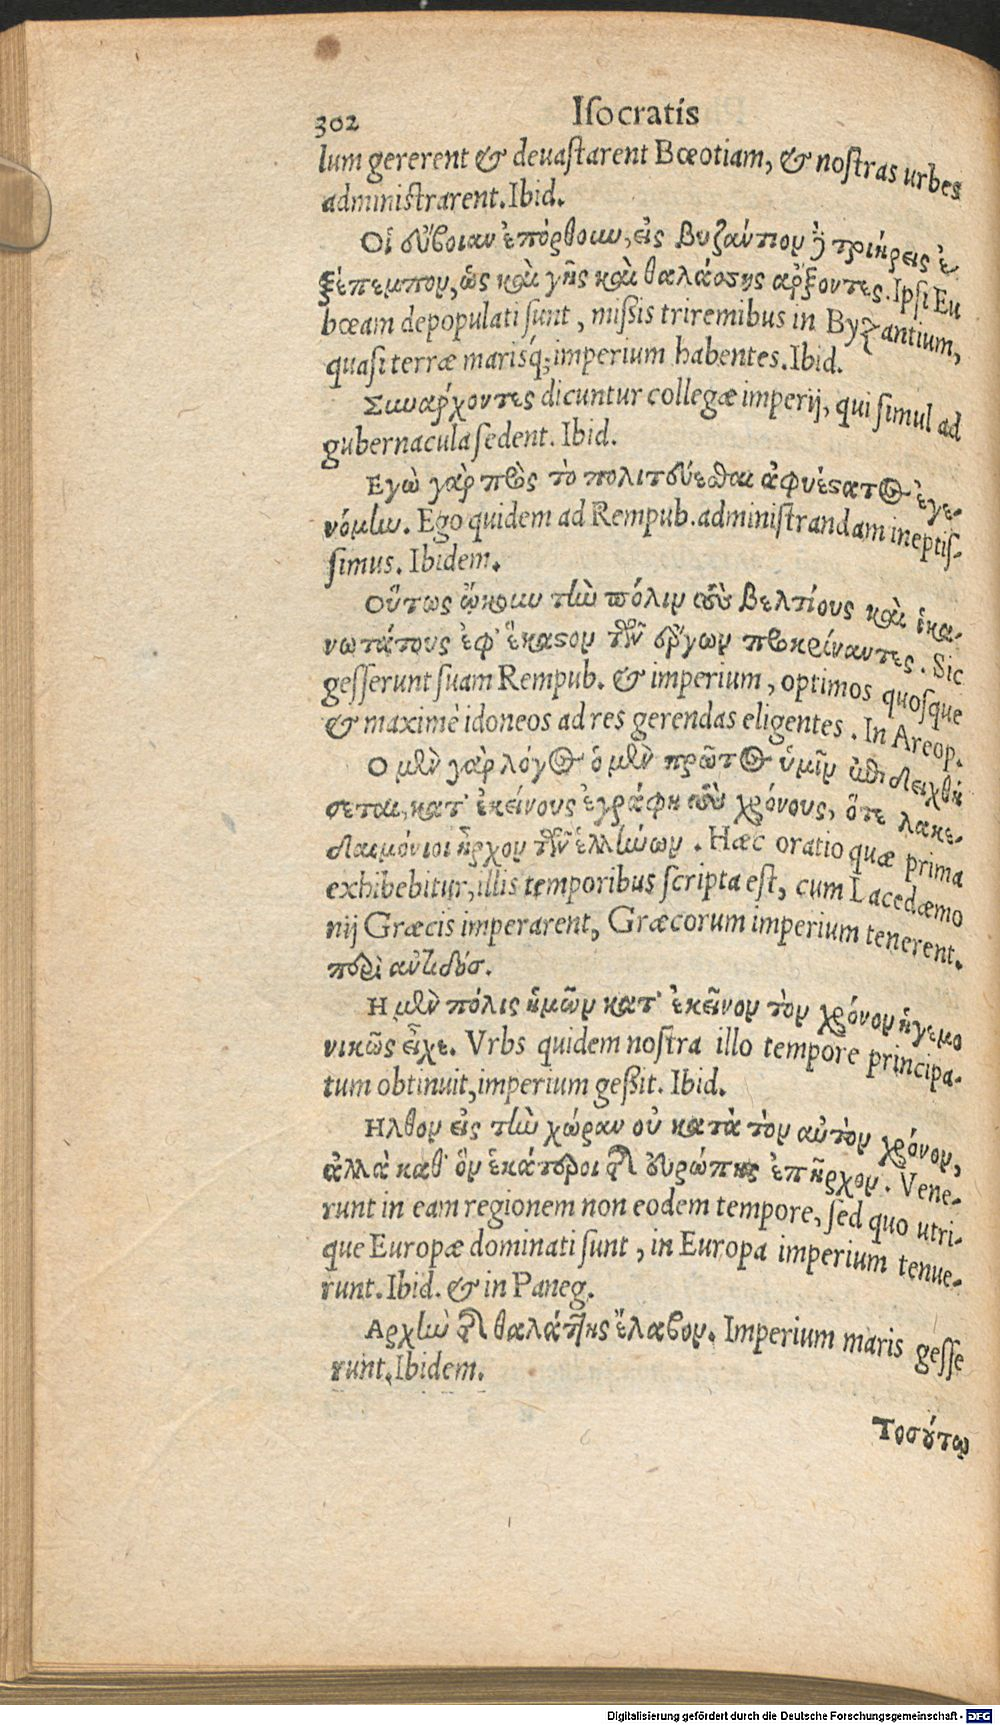 302 Iſocratis
lum gererent & deuaſtarent Bœotiam, & noſtras urbes
adminiſtrarent. Ibid.
Οἱ εὔβοιαν ἐπόρθουν, εἰς Βυζάντιον δὲ τριήρεις ἐ-
ξέπεμπον, ὡς καὶ γῆς καὶ θαλάσσης ἄρξοντες. Ipſi Eu
bœam depopulati ſunt, miſsis triremibus in Byzantium,
quaſi terræ marisq́; imperium habentes. Ibid.
Συναρχοντες dicuntur collegæ imperij, qui ſimul ad
gubernacula ſedent. Ibid.
Εγὼ γὰρ πρὸς τὸ πολιτεύεσθαι ἀφυέστατος ἐγε-
νόμην. Ego quidem ad Rempub. adminiſtrandam ineptiſ-
ſimus. Ibidem.
Οὕτως ᾤκουν τὴν πόλιν τοὺς βελτίους καὶ ἱκα-
νωτάτους ἐφ' ἕκαστον τῶν ἔργων προκρίναντες. Sic
geſſerunt ſuam Rempub. & imperium, optimos quoſque
& maximè idoneos ad res gerendas eligentes. In Areop.
Ο μὲν γὰρ λόγος ὁ μὲν πρῶτος ὑμῖν ἐπιδειχθή
σεται, κατ' ἐκείνους ἐγράφη τοὺς χρόνους, ὅτε λακε-
δαιμόνιοι ἦρχον τῶν ἑλλήνων. Hæc oratio quæ prima
exhibebitur, illis temporibus ſcripta eſt, cum Lacedæmo
nij Græcis imperarent, Græcorum imperium tenerent.
περὶ ἀντιδόσ.
Η μὲν πόλις ἡμῶν κατ' ἐκεῖνον τὸν χρόνον ἡγεμο
νικῶς εἶχε. Vrbs quidem noſtra illo tempore principa-
tum obtinuit, imperium geßit. Ibid.
Ηλθον εἰς τὴν χώραν οὐ κατὰ τὸν αὐτὸν χρόνον,
ἀλλὰ καθ' ὃν ἑκάτεροι τῆς εὐρώπης ἐπῆρχον. Vene-
runt in eam regionem non eodem tempore, ſed quo utri-
que Europæ dominati ſunt, in Europa imperium tenue-
runt. Ibid. & in Paneg.
Αρχὴν τῆς θαλάττης ἔλαβον. Imperium maris geſſe
runt. Ibidem.
Τοσούτῳ
Digitalisierung gefördert durch die Deutsche Forschungsgemeinschaft - DFG